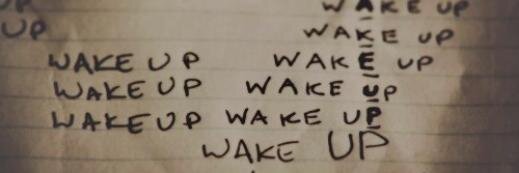 WAKE UP
UP WAKE UP
WAKE UP WAKE UP
WAKE UP WAKE UP
WAKE UP WAKE UP
WAKE UP